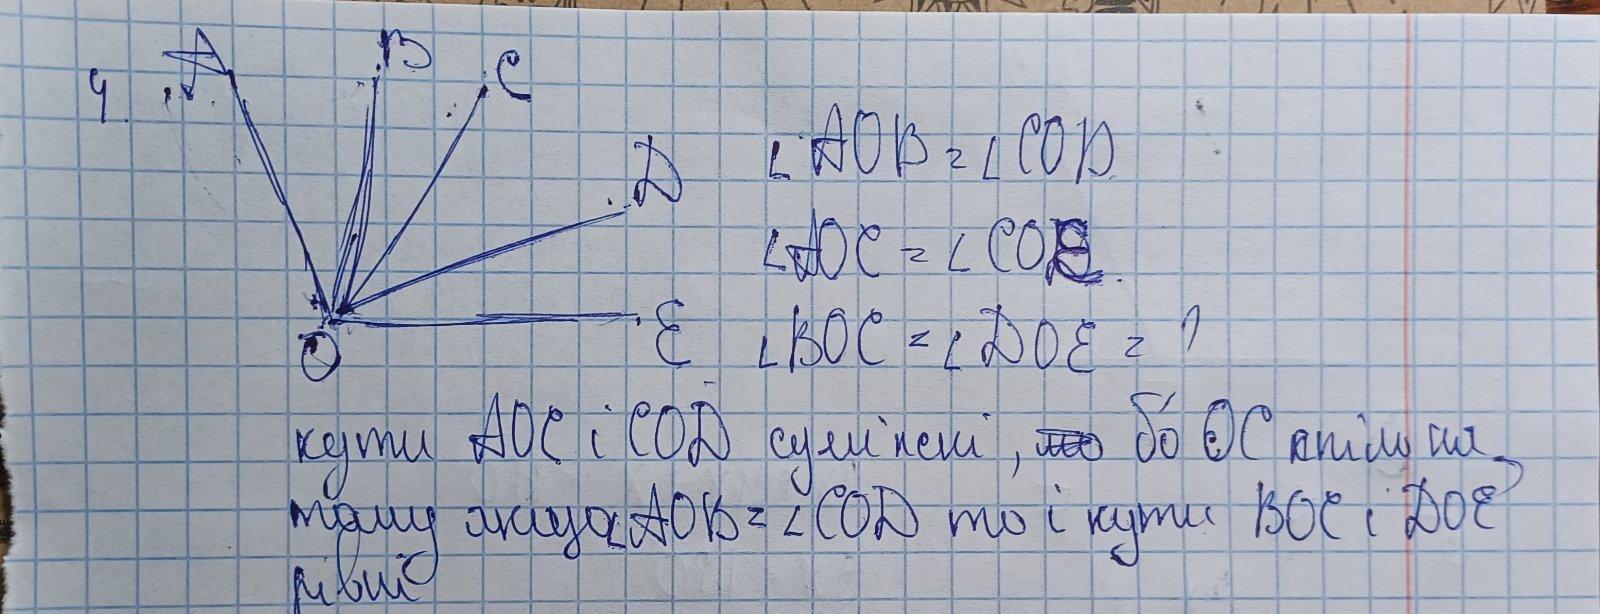 4.
A
B
C
D
E
O
∠AOB = ∠COD
∠AOC = ∠COE.
∠BOC = ∠DOE = ?
кути AOC і COD суміжні, бо OC спільна,
тому якщо ∠AOB = ∠COD то і кути BOC і DOE
рівні